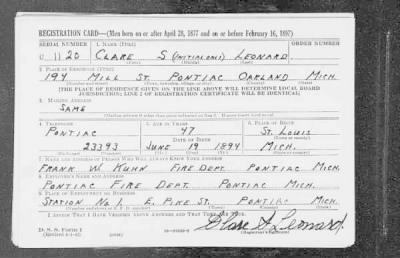 REGISTRATION CARD—(Men born on or after April 28, 1877 and on or before February 16, 1897)
SERIAL NUMBER 1. NAME (Print)
U 1120 CLARE S (INITIAL ONLY) LEONARD
2. PLACE OF RESIDENCE (Print)
194 MILL ST. PONTIAC OAKLAND MICH.
[THE PLACE OF RESIDENCE GIVEN ON THE LINE ABOVE WILL DETERMINE LOCAL BOARD
JURISDICTION; LINE 2 OF REGISTRATION CERTIFICATE WILL BE IDENTICAL]
3. MAILING ADDRESS
SAME
4. TELEPHONE 5. AGE IN YEARS 6. PLACE OF BIRTH
PONTIAC 47 ST. LOUIS
DATE OF BIRTH
23393 JUNE 19 1894 MICH.
7. NAME AND ADDRESS OF PERSON WHO WILL ALWAYS KNOW YOUR ADDRESS
FRANK W. KUHN FIRE DEPT. PONTIAC MICH.
8. EMPLOYER'S NAME AND ADDRESS
PONTIAC FIRE DEPT. PONTIAC MICH.
9. PLACE OF EMPLOYMENT OR BUSINESS
STATION NO 1. E. PIKE ST. PONTIAC MICH.
I AFFIRM THAT I HAVE VERIFIED ABOVE ANSWERS AND THAT THEY ARE TRUE.
D. S. S. Form 1
Clare S. Leonard